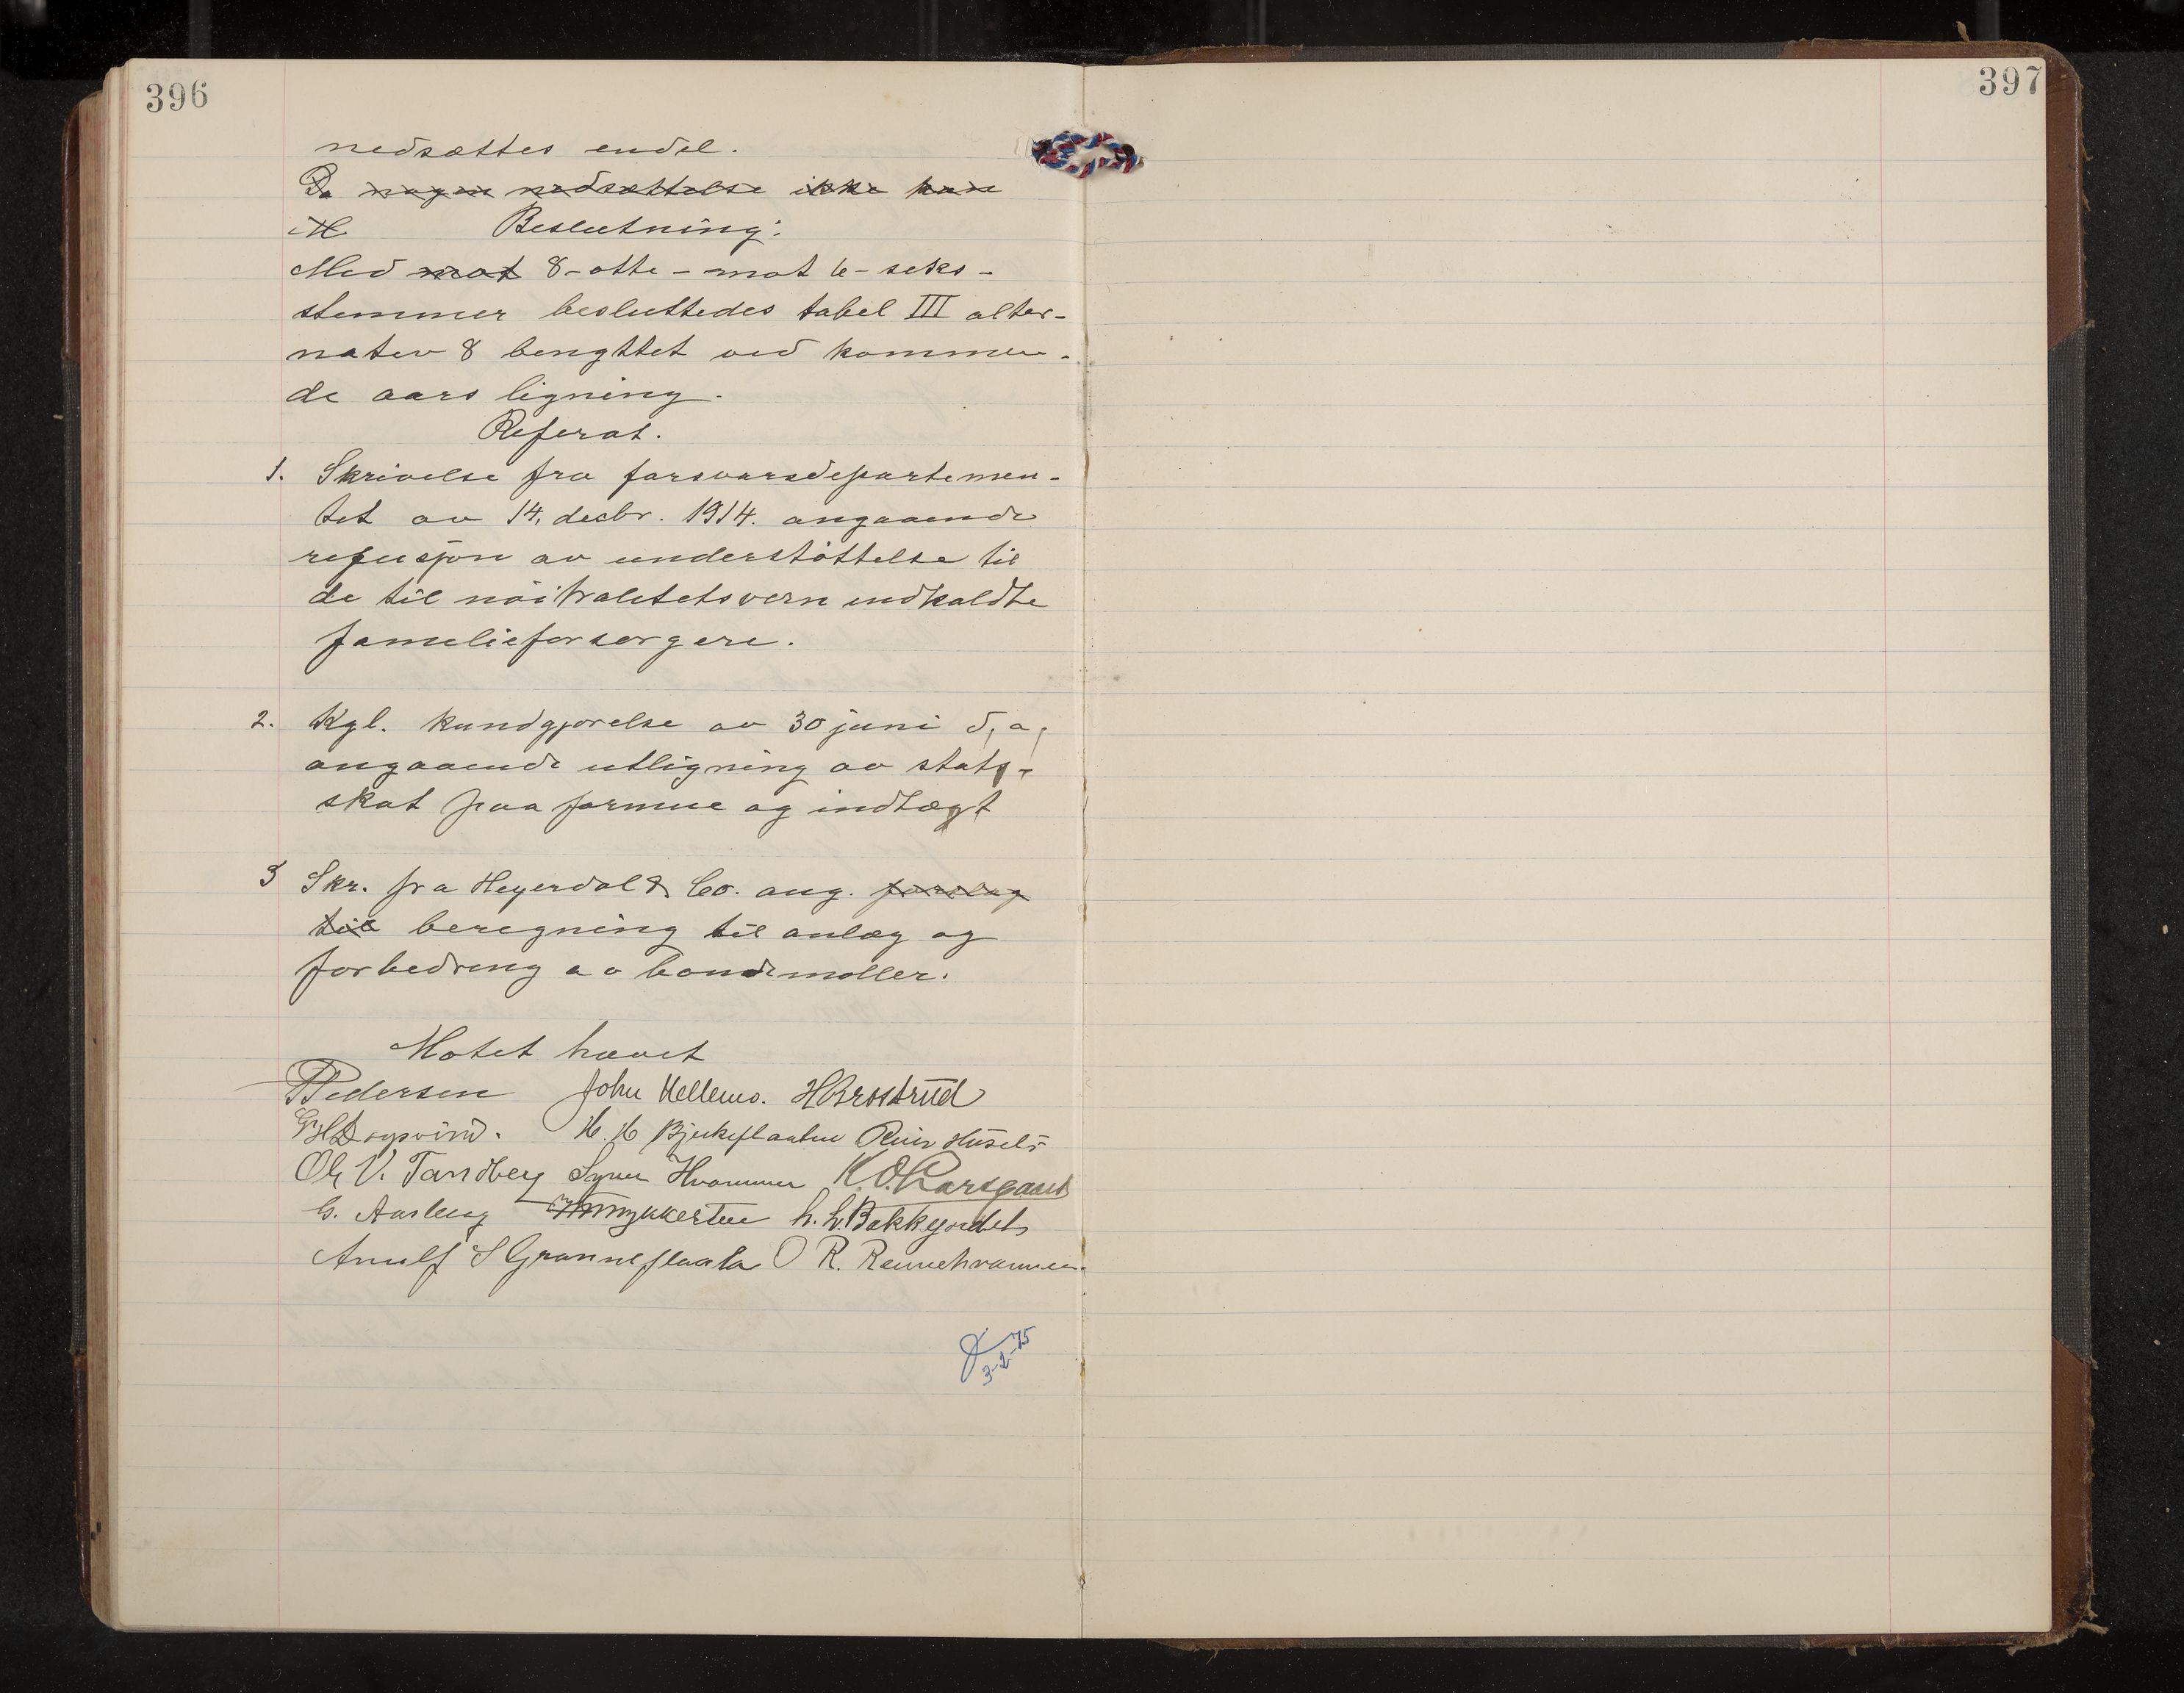 396
397
nedsættes endel.
Da nogen nedsættelse ikke kan
M Beslutning:
Med mot 8-otte-mot 6-seks-
stemmer besluttedes tabel III alter-
nativ 8 benyttet ved kommen-
de aars ligning.
Referat.
1. Skrivelse fra forsvarsdepartemen-
tet av 14, decbr. 1914. angaaende
refusjon av understøttelse til
de til nøitralitetsvern indkaldte
familieforsorgere.
2. Kgl. kundgjorelse av 30 juni d, a,
angaaende utligning av stats-
skat paa formue og indtægt
3 Skr. fra Heyerdal & Co. ang. forslag
til beregning til anlæg og
forbedring av bondemøller.
Motet hævet
Pedersen John Hellemo. H Brostrud
H. H Bjerkeflaaten
Ole V. Tandberg Syver Hvammen K.O. Garsgaard
G. Aasberg h. h. Bakkegardet
Arnulf S Granneflaata O R. Rennehvammen
3-2-75